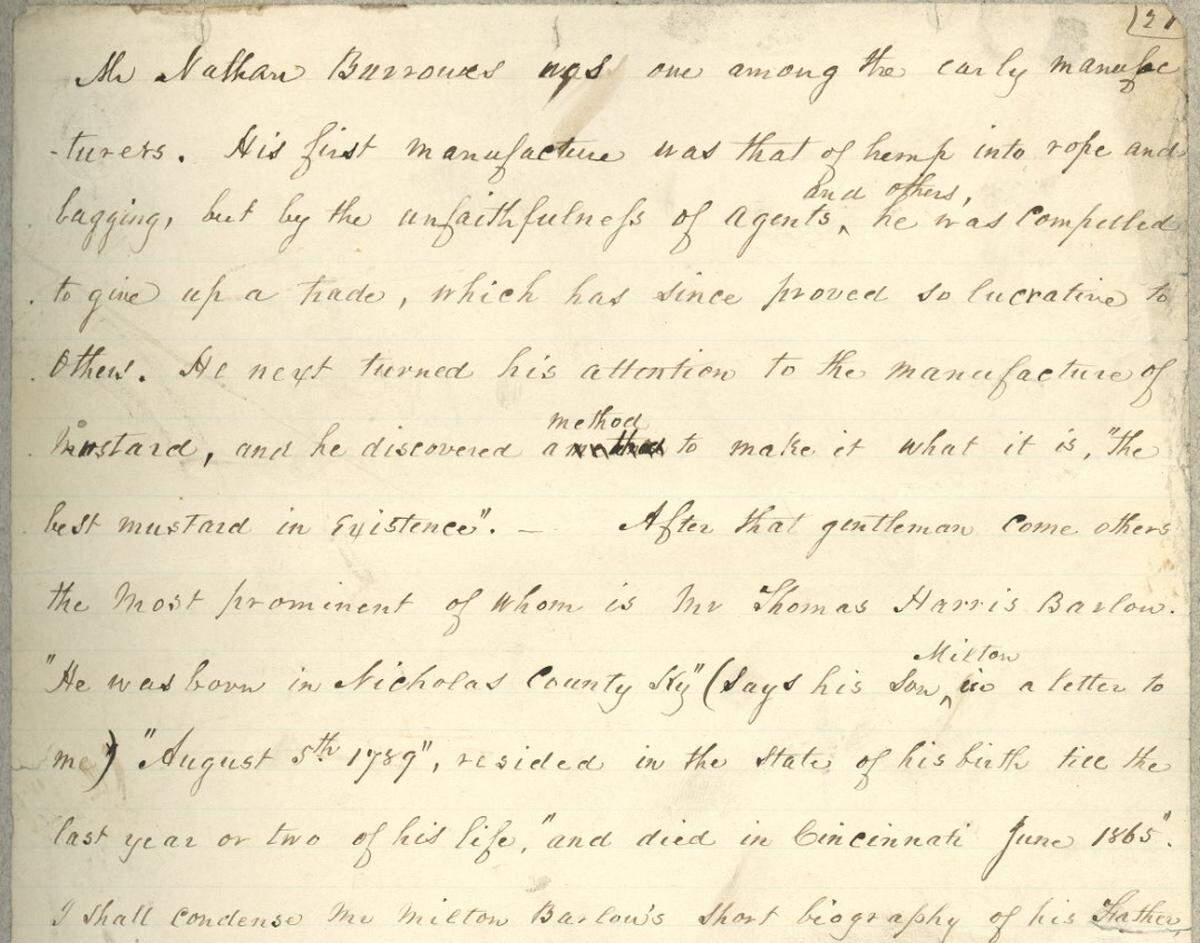 (21
Mr Nathan Burrowes was one among the early manufac
-turers. His first manufacture was that of hemp into rope and
and others,
bagging, but by the unfaithfulness of agents, he was compelled
to give up a trade, which has since proved so lucrative to
others. He next turned his attention to the manufacture of
method
mustard, and he discovered a method to make it what it is, "the
best mustard in existence". — After that gentleman come others
the most prominent of whom is Mr Thomas Harris Barlow.
Milton
"He was born in Nicholas County Ky" (says his son, in a letter to
me) "August 5th 1789", resided in the State of his birth till the
last year or two of his life, "and died in Cincinnati June 1865".
I shall condense Mr Milton Barlow's short biography of his Father,